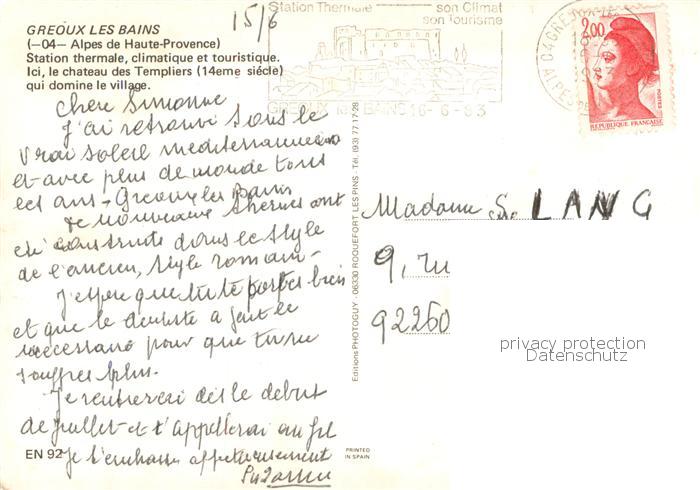 GREOUX LES BAINS
(—04— Alpes de Haute-Provence)
Station thermale, climatique et touristique.
Ici, le chateau des Templiers (14eme siécle)
qui domine le village.
15/6
Station Thermale son Climat
son Tourisme
GREOUX les BAINS 16-6-83
2,00
POSTES
REPUBLIQUE FRANÇAISE
Chère Simonne
J'ai retrouvé sous le
vrai soleil mediterraneen
et avec plus de monde tous
les ans - Greoux les Bains
de nouveaux thermes ont
été construits dans le style
de l'ancien, style romain -
J'espère que tu te portes bien
et que le dentiste a fait le
necessaire pour que tu ne
souffres plus.
Je rentrerai dès le debut
de juillet et t'appellerai au fil
Je t'embrasse affectueusement
Suzanne
Madame S. LANG
9, ru
92260
Editions PHOTOGUY - 06330 ROQUEFORT LES PINS - Tél. (93) 77.17.28
EN 92
PRINTED
IN SPAIN
privacy protection
Datenschutz